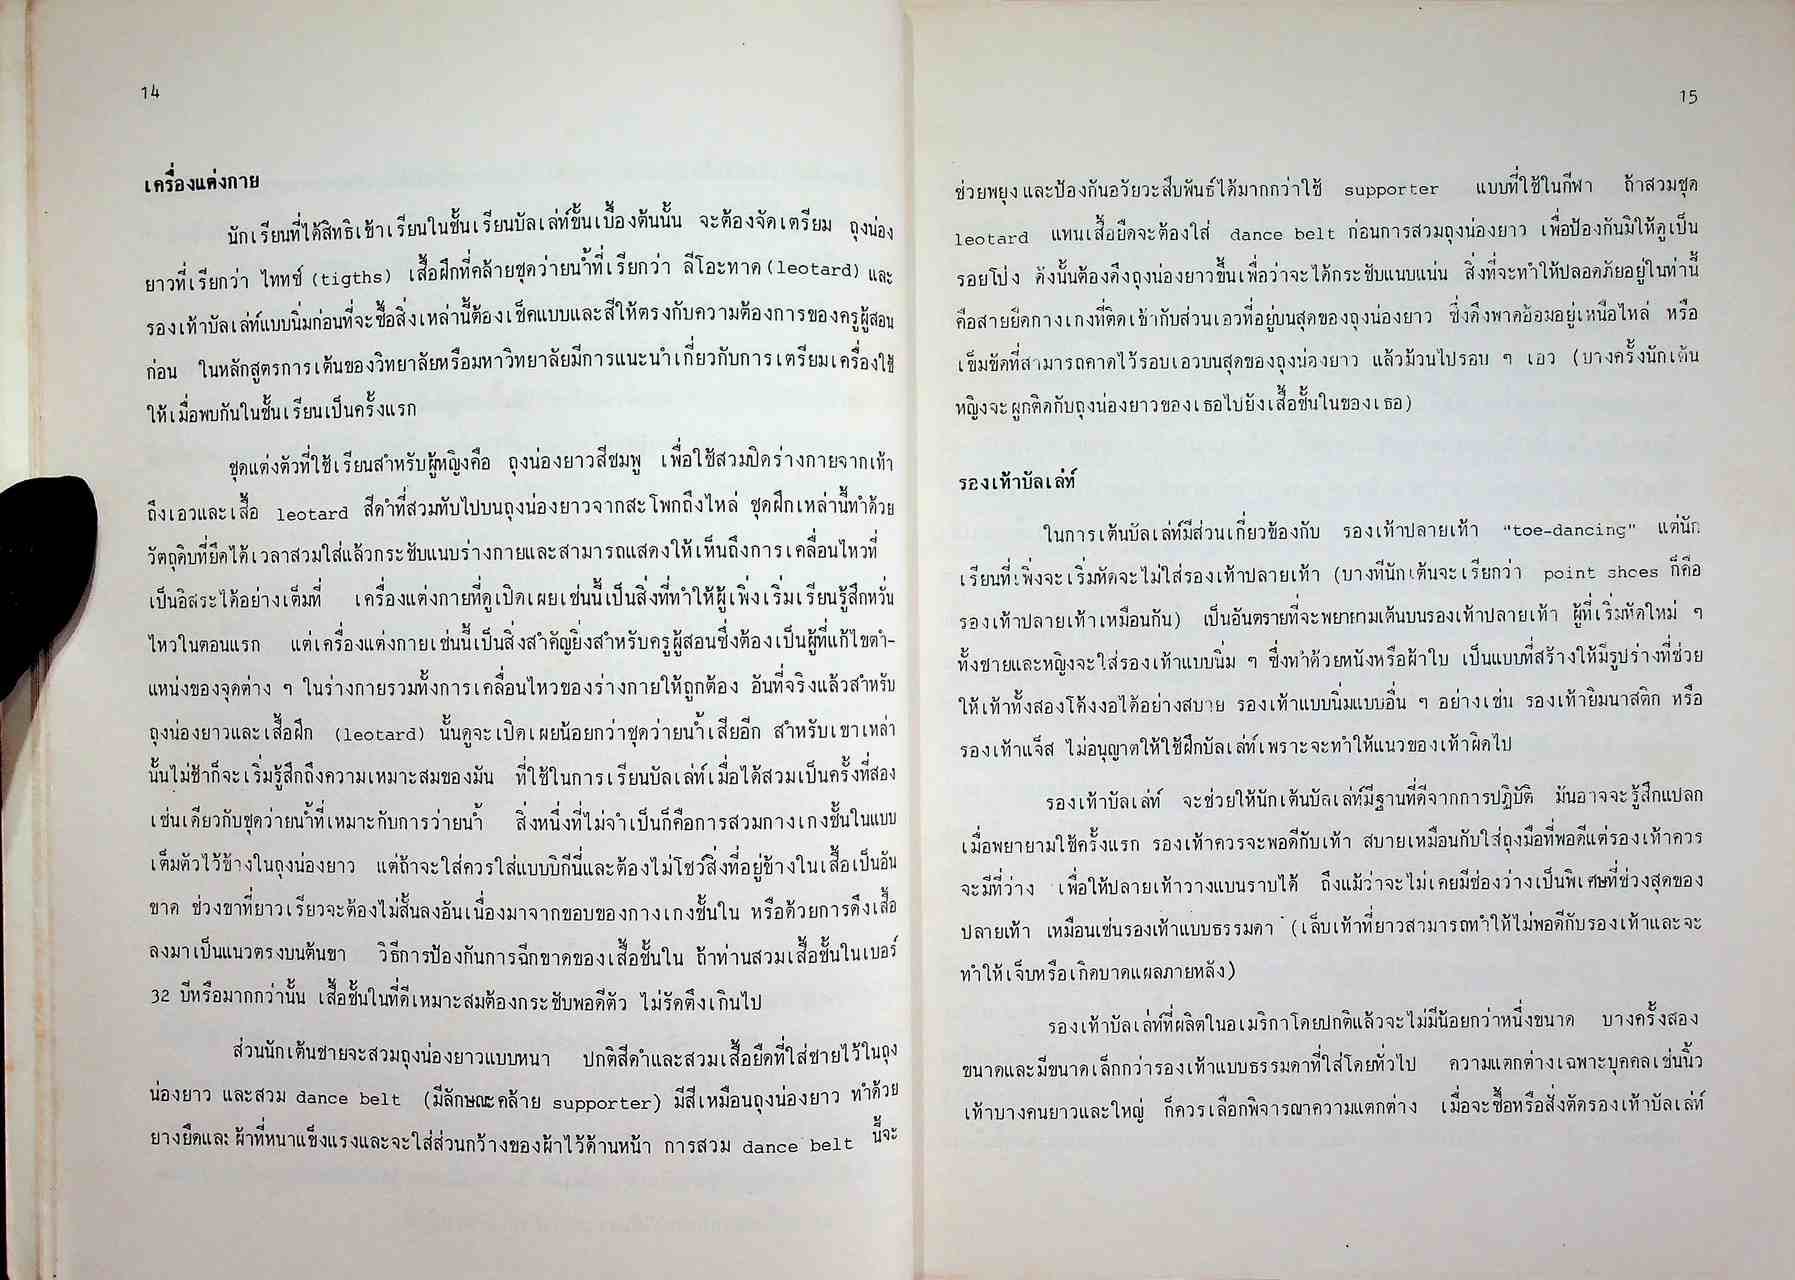 14
เครื่องแต่งกาย
นักเรียนที่ได้สิทธิเข้าเรียนในชั้นเรียนบัลเล่ท์ขั้นเบื้องต้นนั้น จะต้องจัดเตรียม ถุงน่อง
ยาวที่เรียกว่า ไททซ์ (tigths) เสื้อฝึกที่คล้ายชุดว่ายน้ำที่เรียกว่า ลีโอะทาด (leotard) และ
รองเท้าบัลเล่ท์แบบนิ่มก่อนที่จะซื้อสิ่งเหล่านี้ต้องเช็คแบบและสีให้ตรงกับความต้องการของครูผู้สอน
ก่อน ในหลักสูตรการเต้นของวิทยาลัยหรือมหาวิทยาลัยมีการแนะนำเกี่ยวกับการเตรียมเครื่องใช้
ให้เมื่อพบกันในชั้นเรียนเป็นครั้งแรก
ชุดแต่งตัวที่ใช้เรียนสำหรับผู้หญิงคือ ถุงน่องยาวสีชมพู เพื่อใช้สวมปิดร่างกายจากเท้า
ถึงเอวและเสื้อ leotard สีดำที่สวมทับไปบนถุงน่องยาวจากสะโพกถึงไหล่ ชุดฝึกเหล่านี้ทำด้วย
วัตถุดิบที่ยืดได้เวลาสวมใส่แล้วกระชับแนบร่างกายและสามารถแสดงให้เห็นถึงการเคลื่อนไหวที่
เป็นอิสระได้อย่างเต็มที่ เครื่องแต่งกายที่ดูเปิดเผยเช่นนี้เป็นสิ่งที่ทำให้ผู้เพิ่งเริ่มเรียนรู้สึกหวั่น
ไหวในตอนแรก แต่เครื่องแต่งกายเช่นนี้เป็นสิ่งสำคัญยิ่งสำหรับครูผู้สอนซึ่งต้องเป็นผู้ที่แก้ไขตำ-
แหน่งของจุดต่าง ๆ ในร่างกายรวมทั้งการเคลื่อนไหวของร่างกายให้ถูกต้อง อันที่จริงแล้วสำหรับ
ถุงน่องยาวและเสื้อฝึก (leotard) นั้นดูจะเปิดเผยน้อยกว่าชุดว่ายน้ำเสียอีก สำหรับเขาเหล่า
นั้นไม่ช้าก็จะเริ่มรู้สึกถึงความเหมาะสมของมัน ที่ใช้ในการเรียนบัลเล่ท์เมื่อได้สวมเป็นครั้งที่สอง
เช่นเดียวกับชุดว่ายน้ำที่เหมาะกับการว่ายน้ำ สิ่งหนึ่งที่ไม่จำเป็นก็คือการสวมกางเกงชั้นในแบบ
เต็มตัวไว้ข้างในถุงน่องยาว แต่ถ้าจะใส่ควรใส่แบบบิกีนี่และต้องไม่โชว์สิ่งที่อยู่ข้างในเสื้อเป็นอัน
ขาด ช่วงขาที่ยาวเรียวจะต้องไม่สั้นลงอันเนื่องมาจากขอบของกางเกงชั้นใน หรือด้วยการดึงเสื้อ
ลงมาเป็นแนวตรงบนต้นขา วิธีการป้องกันการฉีกขาดของเสื้อชั้นใน ถ้าท่านสวมเสื้อชั้นในเบอร์
32 บีหรือมากกว่านั้น เสื้อชั้นในที่ดีเหมาะสมต้องกระชับพอดีตัว ไม่รัดตึงเกินไป
ส่วนนักเต้นชายจะสวมถุงน่องยาวแบบหนา ปกติสีดำและสวมเสื้อยืดที่ใส่ชายไว้ในถุง
น่องยาว และสวม dance belt (มีลักษณะคล้าย supporter) มีสีเหมือนถุงน่องยาว ทำด้วย
ยางยืดและผ้าที่หนาแข็งแรงและจะใส่ส่วนกว้างของผ้าไว้ด้านหน้า การสวม dance belt นี้จะ
15
ช่วยพยุงและป้องกันอวัยวะสืบพันธ์ได้มากกว่าใช้ supporter แบบที่ใช้ในกีฬา ถ้าสวมชุด
leotard แทนเสื้อยืดจะต้องใส่ dance belt ก่อนการสวมถุงน่องยาว เพื่อป้องกันมิให้ดูเป็น
รอยโป่ง ดังนั้นต้องดึงถุงน่องยาวขึ้นเพื่อว่าจะได้กระชับแนบแน่น สิ่งที่จะทำให้ปลอดภัยอยู่ในท่านี้
คือสายยืดกางเกงที่ติดเข้ากับส่วนเอวที่อยู่บนสุดของถุงน่องยาว ซึ่งดึงพาดอ้อมอยู่เหนือไหล่ หรือ
เข็มขัดที่สามารถคาดไว้รอบเอวบนสุดของถุงน่องยาว แล้วม้วนไปรอบ ๆ เอว (บางครั้งนักเต้น
หญิงจะผูกติดกับถุงน่องยาวของเธอไปยังเสื้อชั้นในของเธอ)
รองเท้าบัลเล่ท์
ในการเต้นบัลเล่ท์มีส่วนเกี่ยวข้องกับ รองเท้าปลายเท้า "toe-dancing" แต่นัก
เรียนที่เพิ่งจะเริ่มหัดจะไม่ใส่รองเท้าปลายเท้า (บางทีนักเต้นจะเรียกว่า point shoes ก็คือ
รองเท้าปลายเท้าเหมือนกัน) เป็นอันตรายที่จะพยายามเต้นบนรองเท้าปลายเท้า ผู้ที่เริ่มหัดใหม่ ๆ
ทั้งชายและหญิงจะใส่รองเท้าแบบนิ่ม ๆ ซึ่งทำด้วยหนังหรือผ้าใบ เป็นแบบที่สร้างให้มีรูปร่างที่ช่วย
ให้เท้าทั้งสองโค้งงอได้อย่างสบาย รองเท้าแบบนิ่มแบบอื่น ๆ อย่างเช่น รองเท้ายิมนาสติก หรือ
รองเท้าแจ็ส ไม่อนุญาตให้ใช้ฝึกบัลเล่ท์เพราะจะทำให้แนวของเท้าผิดไป
รองเท้าบัลเล่ท์ จะช่วยให้นักเต้นบัลเล่ท์มีฐานที่ดีจากการปฏิบัติ มันอาจจะรู้สึกแปลก
เมื่อพยายามใช้ครั้งแรก รองเท้าควรจะพอดีกับเท้า สบายเหมือนกับใส่ถุงมือที่พอดีแต่รองเท้าควร
จะมีที่ว่าง เพื่อให้ปลายเท้าวางแบนราบได้ ถึงแม้ว่าจะไม่เคยมีช่องว่างเป็นพิเศษที่ช่วงสุดของ
ปลายเท้า เหมือนเช่นรองเท้าแบบธรรมดา (เล็บเท้าที่ยาวสามารถทำให้ไม่พอดีกับรองเท้าและจะ
ทำให้เจ็บหรือเกิดบาดแผลภายหลัง)
รองเท้าบัลเล่ท์ที่ผลิตในอเมริกาโดยปกติแล้วจะไม่มีน้อยกว่าหนึ่งขนาด บางครั้งสอง
ขนาดและมีขนาดเล็กกว่ารองเท้าแบบธรรมดาที่ใส่โดยทั่วไป ความแตกต่างเฉพาะบุคคลเช่นนิ้ว
เท้าบางคนยาวและใหญ่ ก็ควรเลือกพิจารณาความแตกต่าง เมื่อจะซื้อหรือสั่งตัดรองเท้าบัลเล่ท์